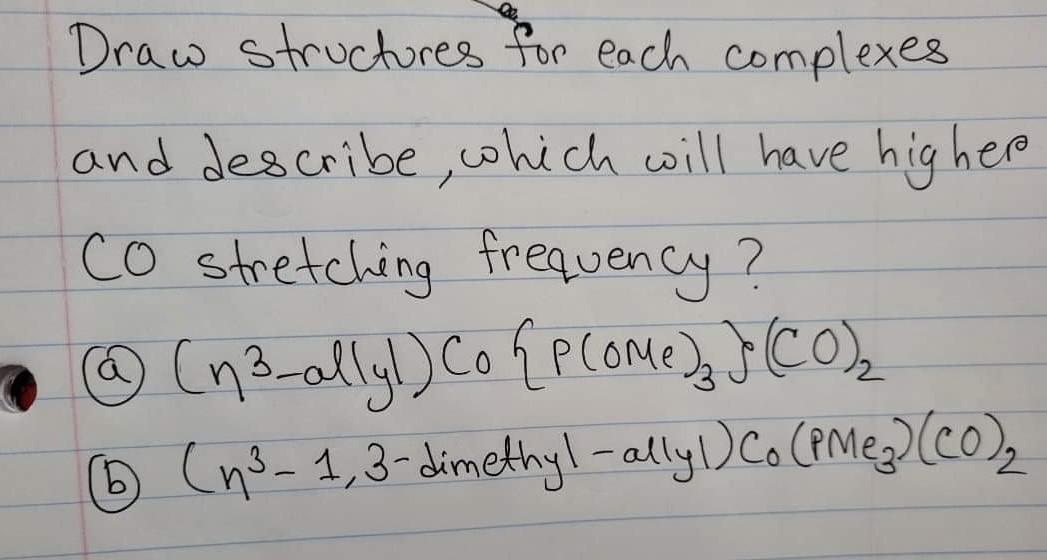 Draw structures for each complexes
and describe, which will have higher
CO stretching frequency?
(a) (η3-allyl)Co{P(OMe)3}(CO)2
(b) (η3-1,3-dimethyl-allyl)Co(PMe3)(CO)2